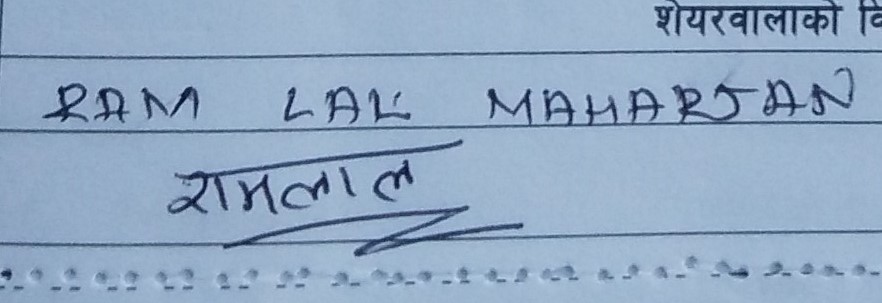 शेयरवालाको वि
RAM LAL MAHARJAN
रामलाल